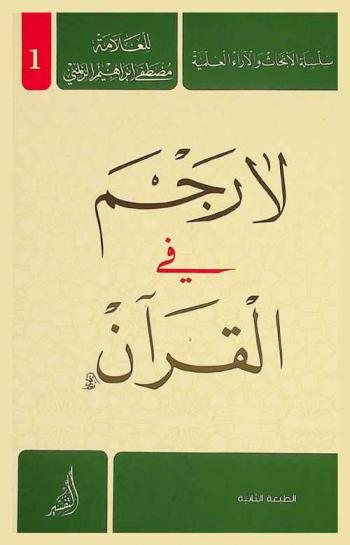 سلسلة الأبحاث والآراء العلمية
للعلامة
مصطفى إبراهيم الزلمي
1
لا رجم
في
القرآن
الطبعة الثانية
التفسير